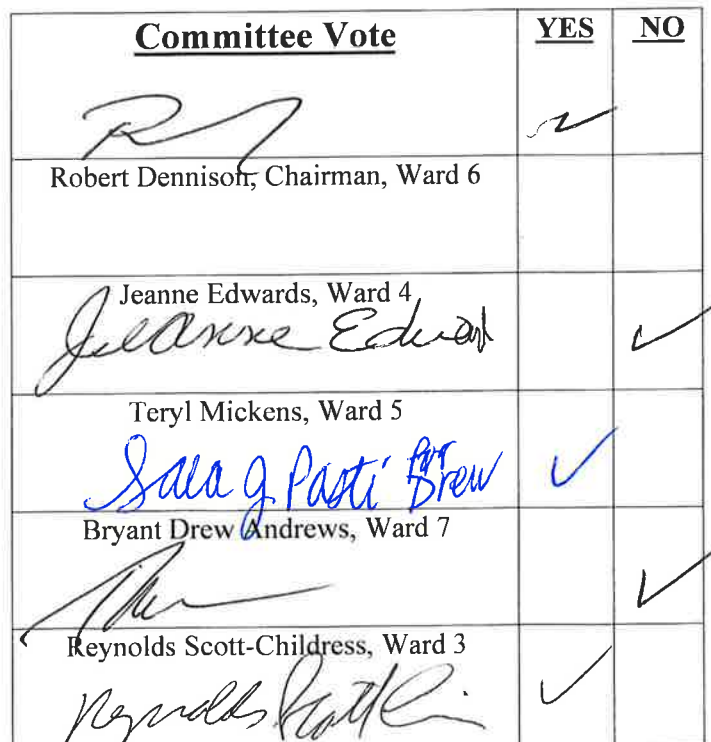 Committee Vote YES NO
Robert Dennison, Chairman, Ward 6
Jeanne Edwards, Ward 4
Jeanne Edwards
Teryl Mickens, Ward 5
Sara J Pasti for Drew
Bryant Drew Andrews, Ward 7
Reynolds Scott-Childress, Ward 3
Reynolds Scott